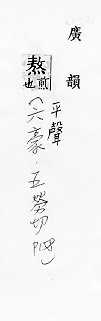 廣韻
熬
煎也
平聲
(六豪·五勞切